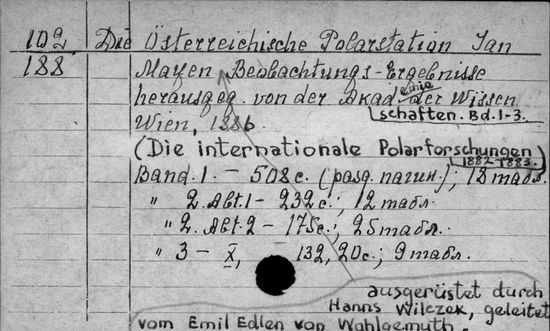 102 Die Österreichische Polarstation Jan
188 Mayen Beobachtungs-Ergebnisse
herausgeg. von der Akademie der Wissen
schaften. Bd. 1-3.
Wien, 1886.
(Die internationale Polarforschungen)
1882-1883.
Band. 1. - 508 с. (разд. нагин.); 18 табл.
" 2. Abt. 1 - 232 с.; 12 табл.
" 2. Abt. 2 - 175 с.; 25 табл.
" 3 - X, 132, 20 с.; 9 табл.
ausgerüstet durch
Hanns Wilczek, geleitet
vom Emil Edlen von Wohlgemuth.